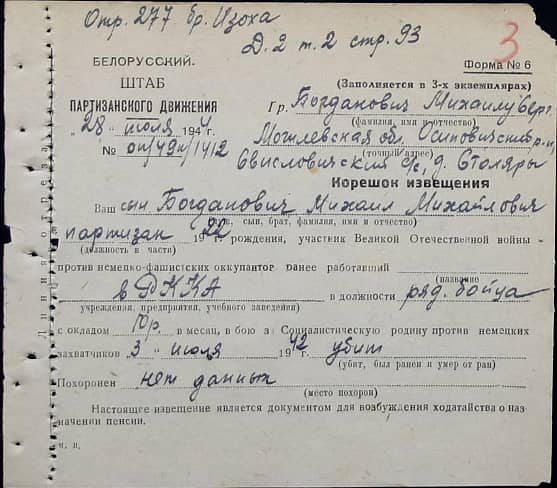 Отр. 277 бр. Изоха
Д. 2 т. 2 стр. 93
3
БЕЛОРУССКИЙ
ШТАБ
ПАРТИЗАНСКОГО ДВИЖЕНИЯ
28 " июля 194 4
№ оп/49н/1412
Форма № 6
(Заполняется в 3-х экземплярах)
Гр. Богданович Михаилу
(фамилия, имя и отчество)
Могилевская обл. Осиповичский р-н,
(точный адрес)
Свислочский с/с, д. Столяры
Корешок извещения
Ваш сын Богданович Михаил Михайлович
сын, брат, фамилия, имя и отчество)
партизан 19 22 рождения, участник Великой Отечественной войны
(должность в части)
против немецко-фашистских оккупантов ранее работавший
(название
в РККА в должности ряд. бойца
учреждения, предприятия, учебного заведения)
с окладом в месяц, в бою за Социалистическую родину против немецких
захватчиков 3 " июля 19 42 убит
(убит, был ранен и умер от ран)
Похоронен нет данных
(место похорон)
Настоящее извещение является документом для возбуждения ходатайства о наз
начении пенсии.
Линия отреза